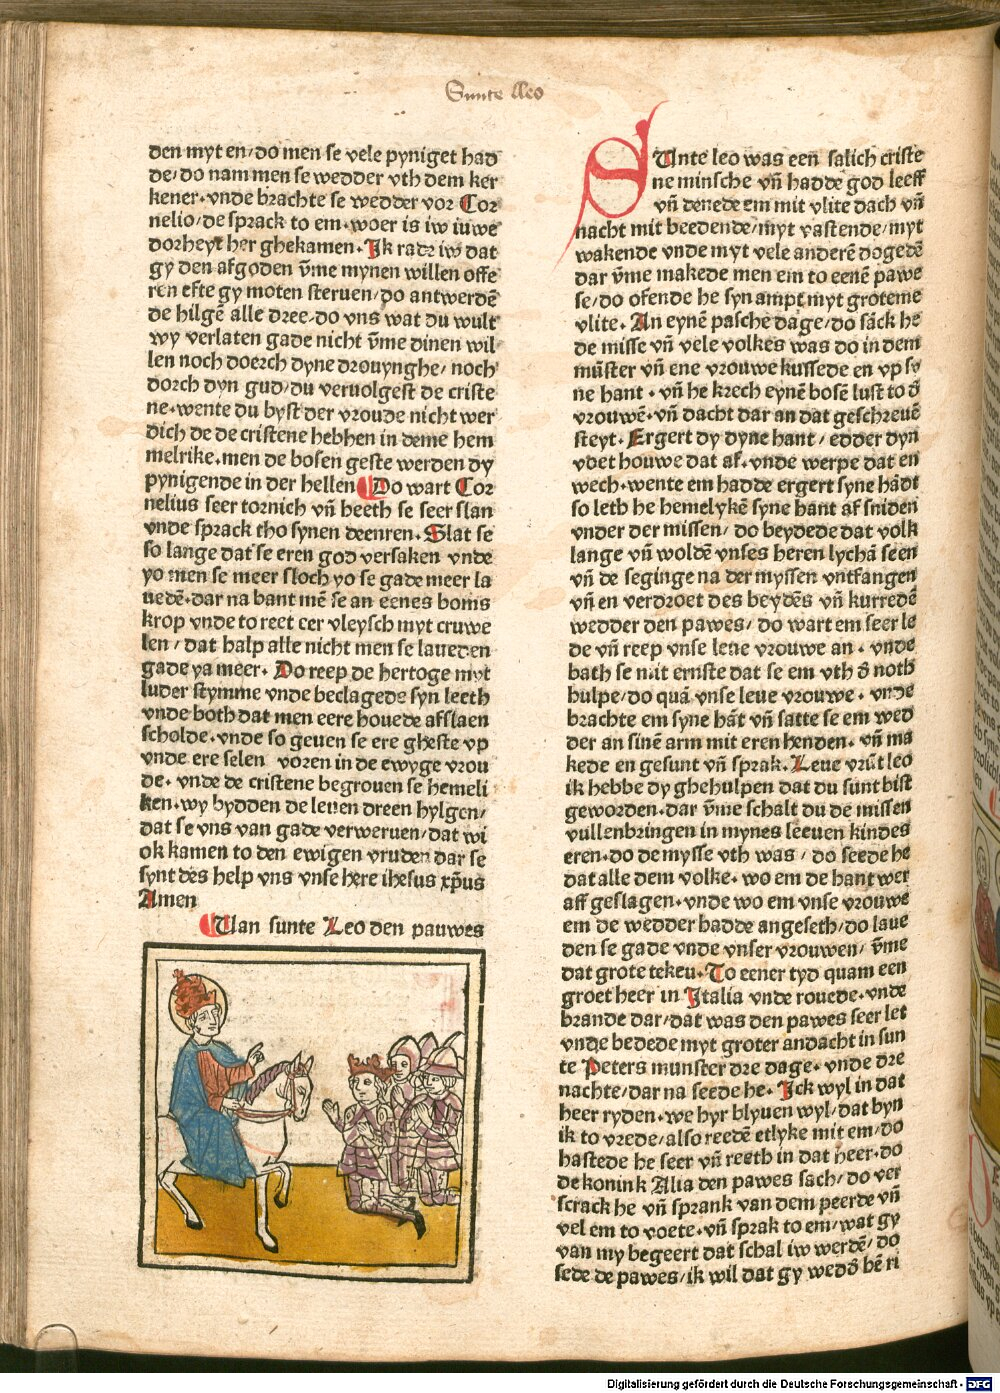 Sunte Leo
den myt en/do men se vele pyniget had
de/do nam men se wedder vth dem ker
kener· vnde brachte se wedder vor Cor
nelio/de sprack to em· woer is iw iuwe
dorheyt her ghekamen· Ik rade iw dat
gy den afgoden v̄me mynen willen offe
ren efte gy moten steruen/do antwerdē
de hilgē alle dree/do vns wat du wult
wy verlaten gade nicht v̄me dinen wil
len noch doerch dyne drouynghe/noch
dorch dyn gud/du veruolgest de criste
ne·wente du byst der vroude nicht wer
dich de de cristene hebhen in deme hem
melrike·men de bosen geste werden dy
pynigende in der hellen Do wart Cor
nelius seer tornich vn̄ heeth se seer slan
vnde sprack tho synen deenren· Slat se
so lange dat se eren god versaken vnde
yo men se meer sloch yo se gade meer la
uedē·dar na bant mē se an eenes boms
krop vnde to reet eer vleysch myt cruwe
len/dat halp alle nicht men se laueden
gade ya meer· Do reep de hertoge myt
luder stymme vnde beclagede syn leeth
vnde both dat men eere houede afslaen
scholde·vnde so geuen se ere gheste vp
vnde ere selen voren in de ewyge vrou
de· vnde de cristene begrouen se hemeli
ken·wy bydden de leuen dreen hylgen/
dat se vns van gade verweruen/dat wi
ok kamen to den ewigen vruden dar se
synt des help vns vnse here ihesus xp̄us
Amen
Uan sunte Leo den pauwes
SUnte leo was een salich criste
ne minsche vn̄ hadde god leeff
vn̄ denede em mit vlite dach vn̄
nacht mit beedende/myt vastende/myt
wakende vnde myt vele anderē dogedē
dar v̄me makede men em to eenē pawe
se/do ofende he syn ampt myt groteme
vlite· An eynē pasche dage/do sāck he
de misse vn̄ vele volkes was do in dem
mūster vn̄ ene vrouwe kussede en vp sy
ne hant · vn̄ he krech eynē bosē lust to d̄
vrouwē·vn̄ dacht dar an dat geschreuē
steyt· Ergert dy dyne hant/edder dyn
voet houwe dat af·vnde werpe dat en
wech·wente em hadde ergert syne hādt
so leth he hemelykē syne hant af sniden
vnder der missen/do beydede dat volk
lange vn̄ woldē vnses heren lychā seen
vn̄ de seginge na der myssen vntfangen
vn̄ en verdroet des beydēs vn̄ kurredē
wedder den pawes/do wart em seer le
de vn̄ reep vnse leue vrouwe an · vnde
bath se mit ernste dat se em vth d̄ noth
hulpe/do quā vnse leue vrouwe · vnde
brachte em syne hāt vn̄ satte se em wed
der an sinē arm mit eren henden· vn̄ ma
kede en gesunt vn̄ sprak· Leue vrūt leo
ik hebbe dy ghehulpen dat du sunt bist
geworden·dar v̄me schalt du de missen
vullenbringen in mynes leeuen kindes
eren·do de mysse vth was/do seede he
dat alle dem volke·wo em de hant wer
aff geslagen·vnde wo em vnse vrouwe
em de wedder hadde angeseth/do laue
den se gade vnde vnser vrouwen/v̄me
dat grote teken·To eener tyd quam een
groet heer in Italia vnde rouede·vnde
brande dar/dat was den pawes seer let
vnde bedede myt groter andacht in sun
te Peters munster dre dage·vnde dre
nachte/dar na seede he· Ick wyl in dat
heer ryden·we hyr blyuen wyl/dat byn
ik to vrede/also reedē etlyke mit em/do
hastede he seer vn̄ reeth in dat heer·do
de konink Alia den pawes sach/do ver
scrack he vn̄ sprank van dem peerde vn̄
vel em to voete·vn̄ sprak to em/wat gy
van my begeert dat schal iw werdē/do
sede de pawes/ik wil dat gy wedd̄ hē ri
Digitalisierung gefördert durch die Deutsche Forschungsgemeinschaft - DFG